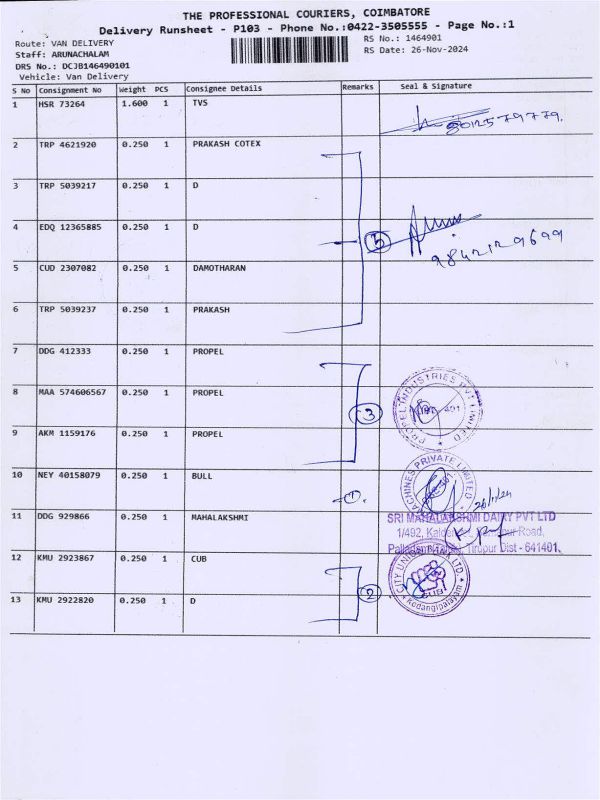 THE PROFESSIONAL COURIERS, COIMBATORE
Delivery Runsheet - P103 - Phone No.:0422-3505555 - Page No.:1
Route: VAN DELIVERY
RS No.: 1464901
Staff: ARUNACHALAM
RS Date: 26-Nov-2024
DRS No.: DCJB146490101
Vehicle: Van Delivery
S No Consignment No Weight PCS Consignee Details Remarks Seal & Signature
1 HSR 73264 1.600 1 TVS
2 TRP 4621920 0.250 1 PRAKASH COTEX
3 TRP 5039217 0.250 1 D
4 EDQ 12365885 0.250 1 D
5 CUD 2307082 0.250 1 DAMOTHARAN
6 TRP 5039237 0.250 1 PRAKASH
7 DDG 412333 0.250 1 PROPEL
8 MAA 574606567 0.250 1 PROPEL
3
PROPEL INDUSTRIES PVT LIMITED
9 AKM 1159176 0.250 1 PROPEL
10 NEY 40158079 0.250 1 BULL
1
MACHINES PRIVATE LIMITED
26/11/24
11 DDG 929866 0.250 1 MAHALAKSHMI
SRI MAHALAKSHMI DAIRY PVT LTD
Tirupur Dist - 641401.
12 KMU 2923867 0.250 1 CUB
2
CUB
Kodangipalayam
13 KMU 2922820 0.250 1 D